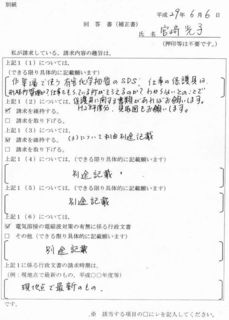 別紙
平成29年6月6日
回答書（補正書）
氏名 宮崎光子
（押印等は不要です。）
私が請求している、請求内容の趣旨は、
上記1（1）については、
（できる限り具体的に記載願います）
作業場で使う有害化学物質のSDS、仕事の保護具は
です。
上記1（2）については、
☑ 請求を維持する。
☐ 請求を取り下げる。
上記1（3）については、
☑ 請求を維持する。
☐ 請求を取り下げる。
上記1（4）については、（できる限り具体的に記載願います）
別途記載
上記1（5）については、
別途記載
上記1（6）については、
☑ 電気溶接の電磁波対策の有無に係る行政文書
☐ その他（できる限り具体的に記載願います）
別途記載
上記1に係る行政文書の請求時期は、
（例：現地点で最新のもの、平成○○年度等）
現地点で最新のもの、
です。
※ 該当する項目の□にレを記入してください。